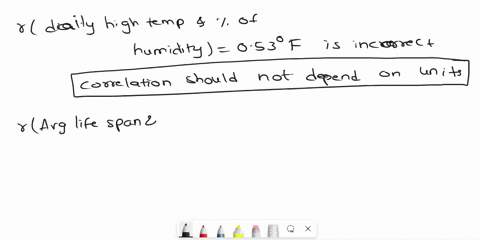 r( daily high temp & % of
humidity) = 0.53° F is incorrect
correlation should not depend on units
r(Avg life span &